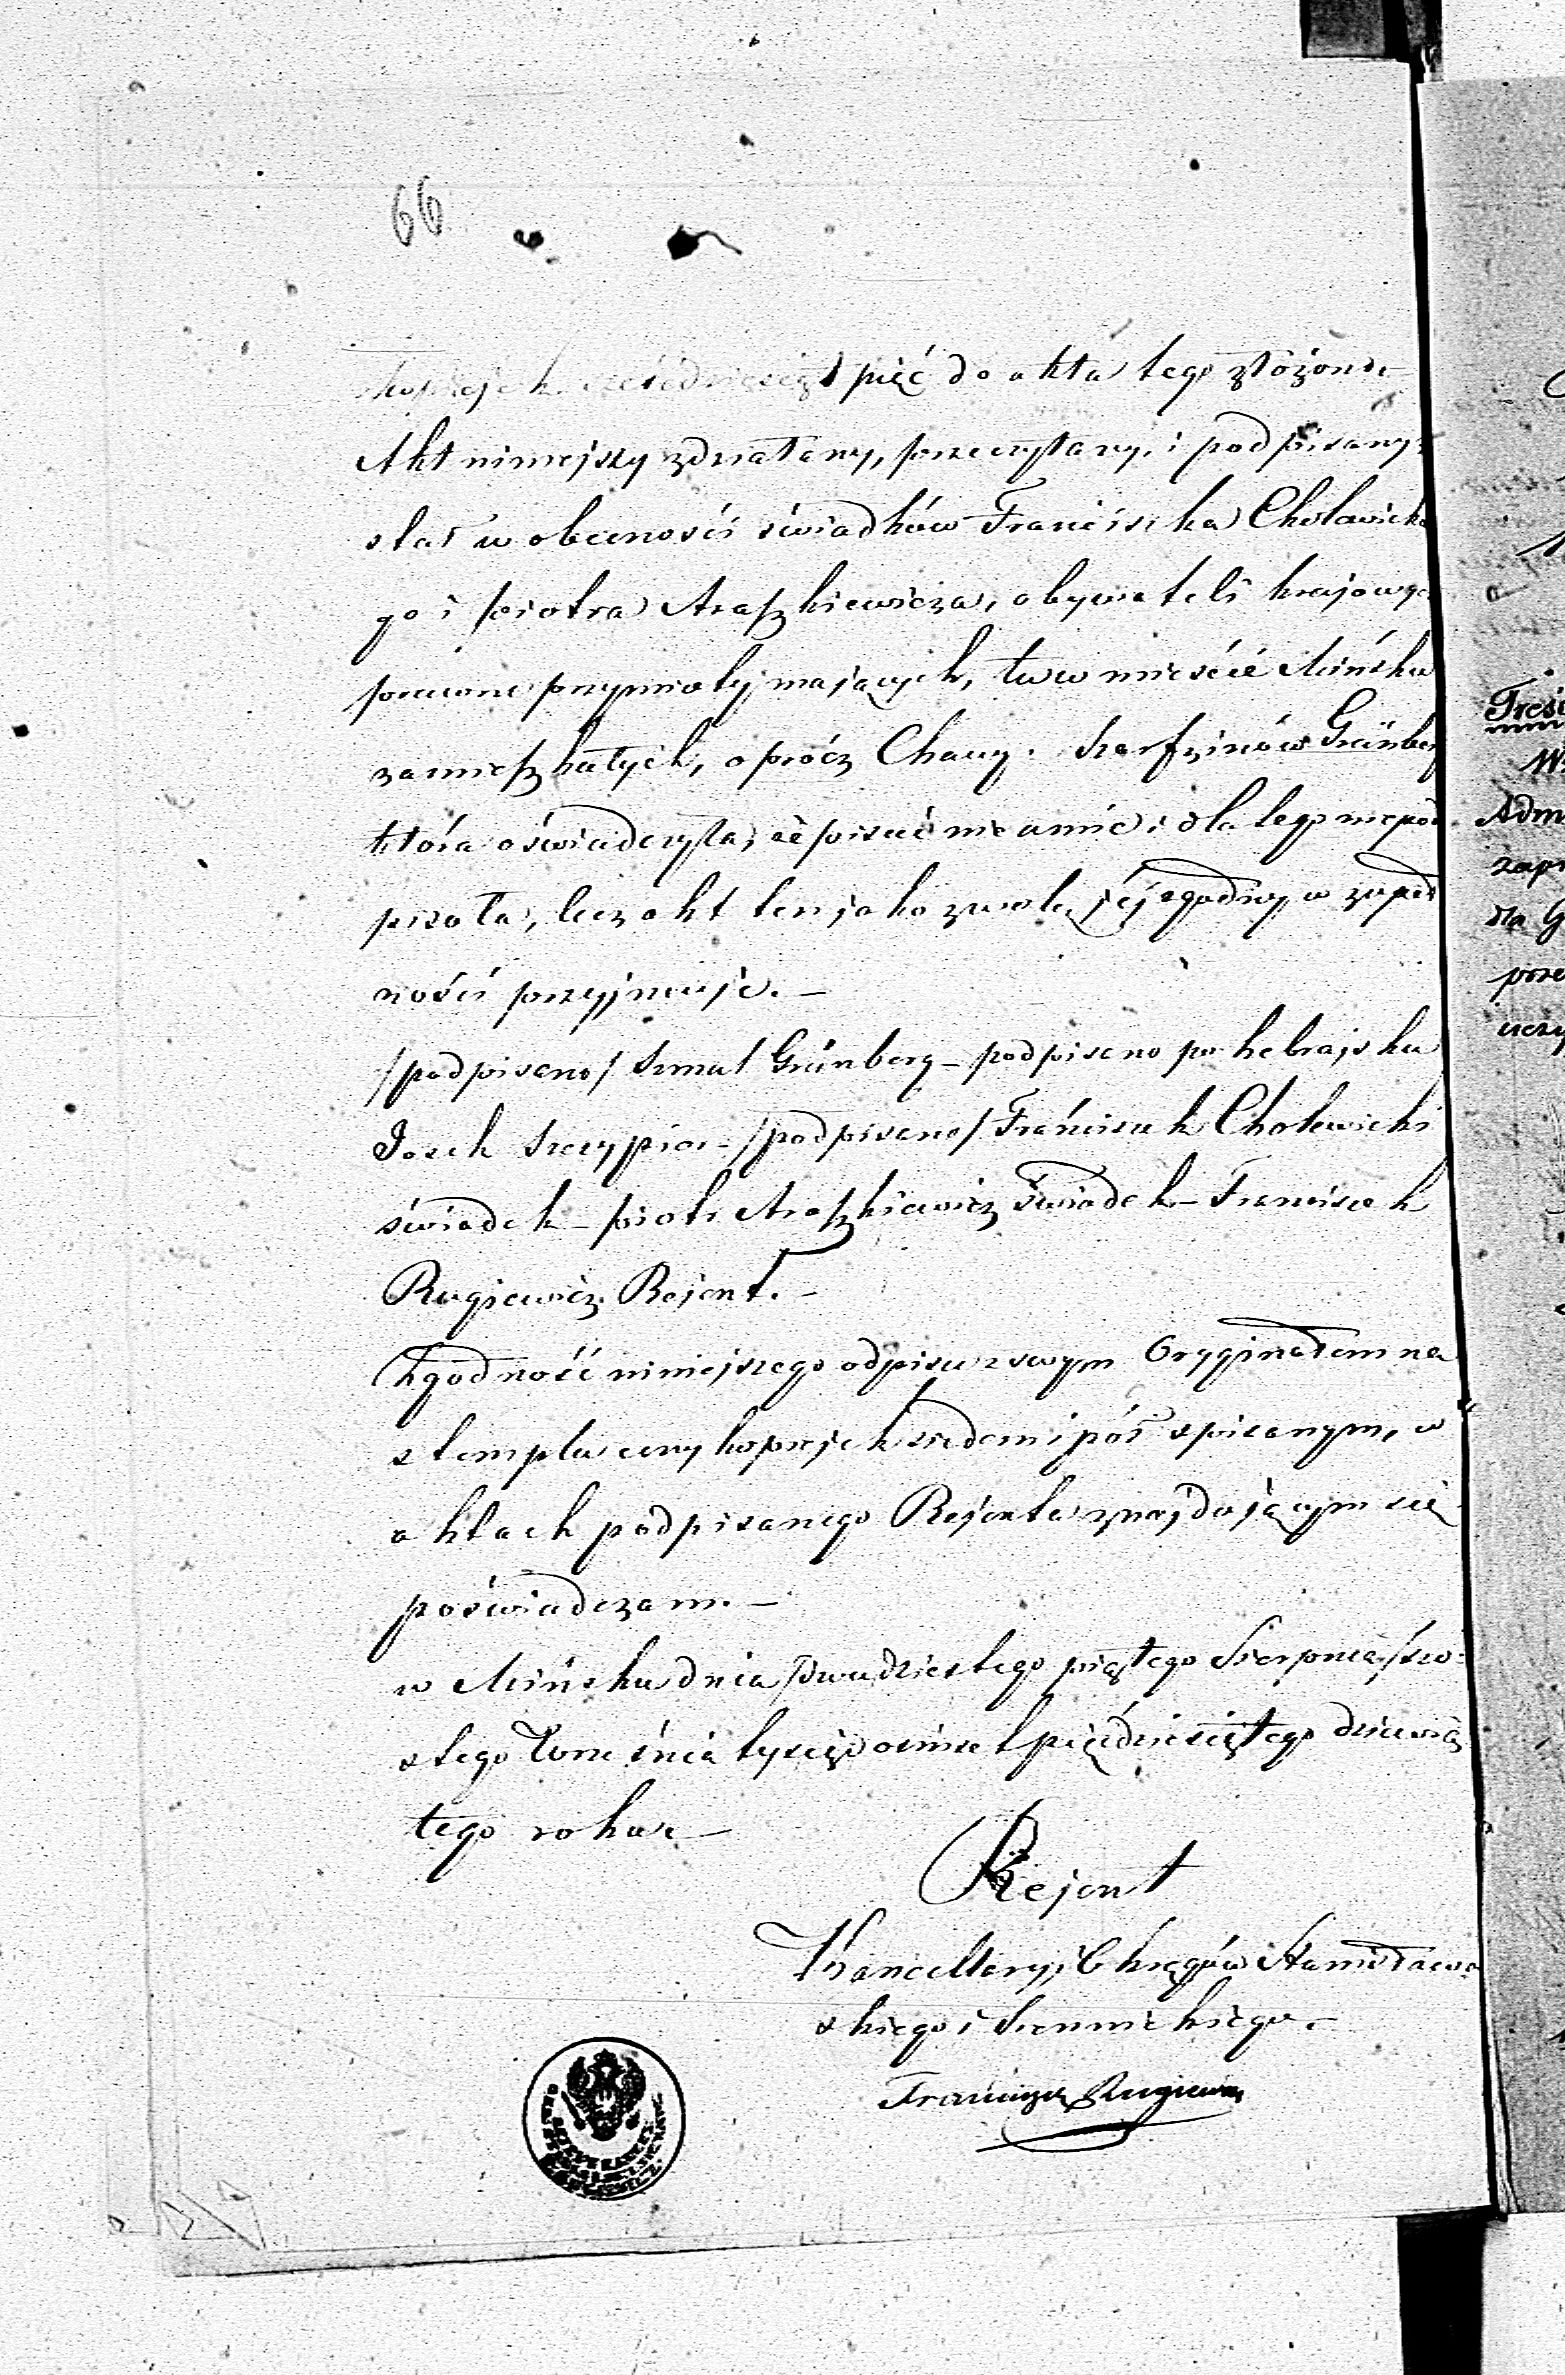 66
kopiejek sześćdziesiąt pięć do akta tego złożono.
Akt niniejszy zdziałany, przeczytany, i podpisany z
stał w obecności świadków Franciszka Cholewickie
go i Piotra Araszkiewicza, obywateli krajowych
prawne przymioty mających, tu w mieście Mińsku
zamieszkałych, oprócz Chany Szarfzinów Grünberg
która oświadczyła, że pisać nie umie i dla tego niepod
pisała, lecz akt ten jako z wolą jéj zgodny w zupeł
ności przyjmuje.—
/podpisano/ Szmul Grünberg – podpisano po hebrajsku
Josek Szczypior – /podpisano/ Franciszek Cholewicki
świadek – Piotr Araszkiewicz świadek – Franciszek
Rugiewicz Rejent.—
Zgodność niniejszego odpisu z swym Oryginałem na
stemplu ceny kopiejek siedem i pół spisanym, w
aktach podpisanego Rejenta znajdującym się
poświadczam.—
w Mińsku dnia dwudziestego piątego Sierpnia/szó-
stego Września tysiąc ośmset pięćdziesiątego dziewią
tego roku.—
Rejent
Kancellaryi Okręgów Stanisławow
skiego i Siennickiego.—
Franciszek Rugiewicz
Treść
Adm
dla G